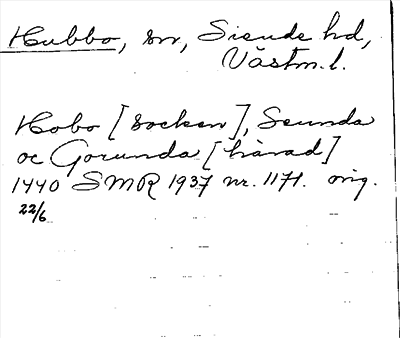 Hubbo, sn, Siende hd,
Västm. l.
Hobo [socken], Seunda
oc Gorunda [härad]
1440 SMR 1937 nr. 1171. orig.
22/6